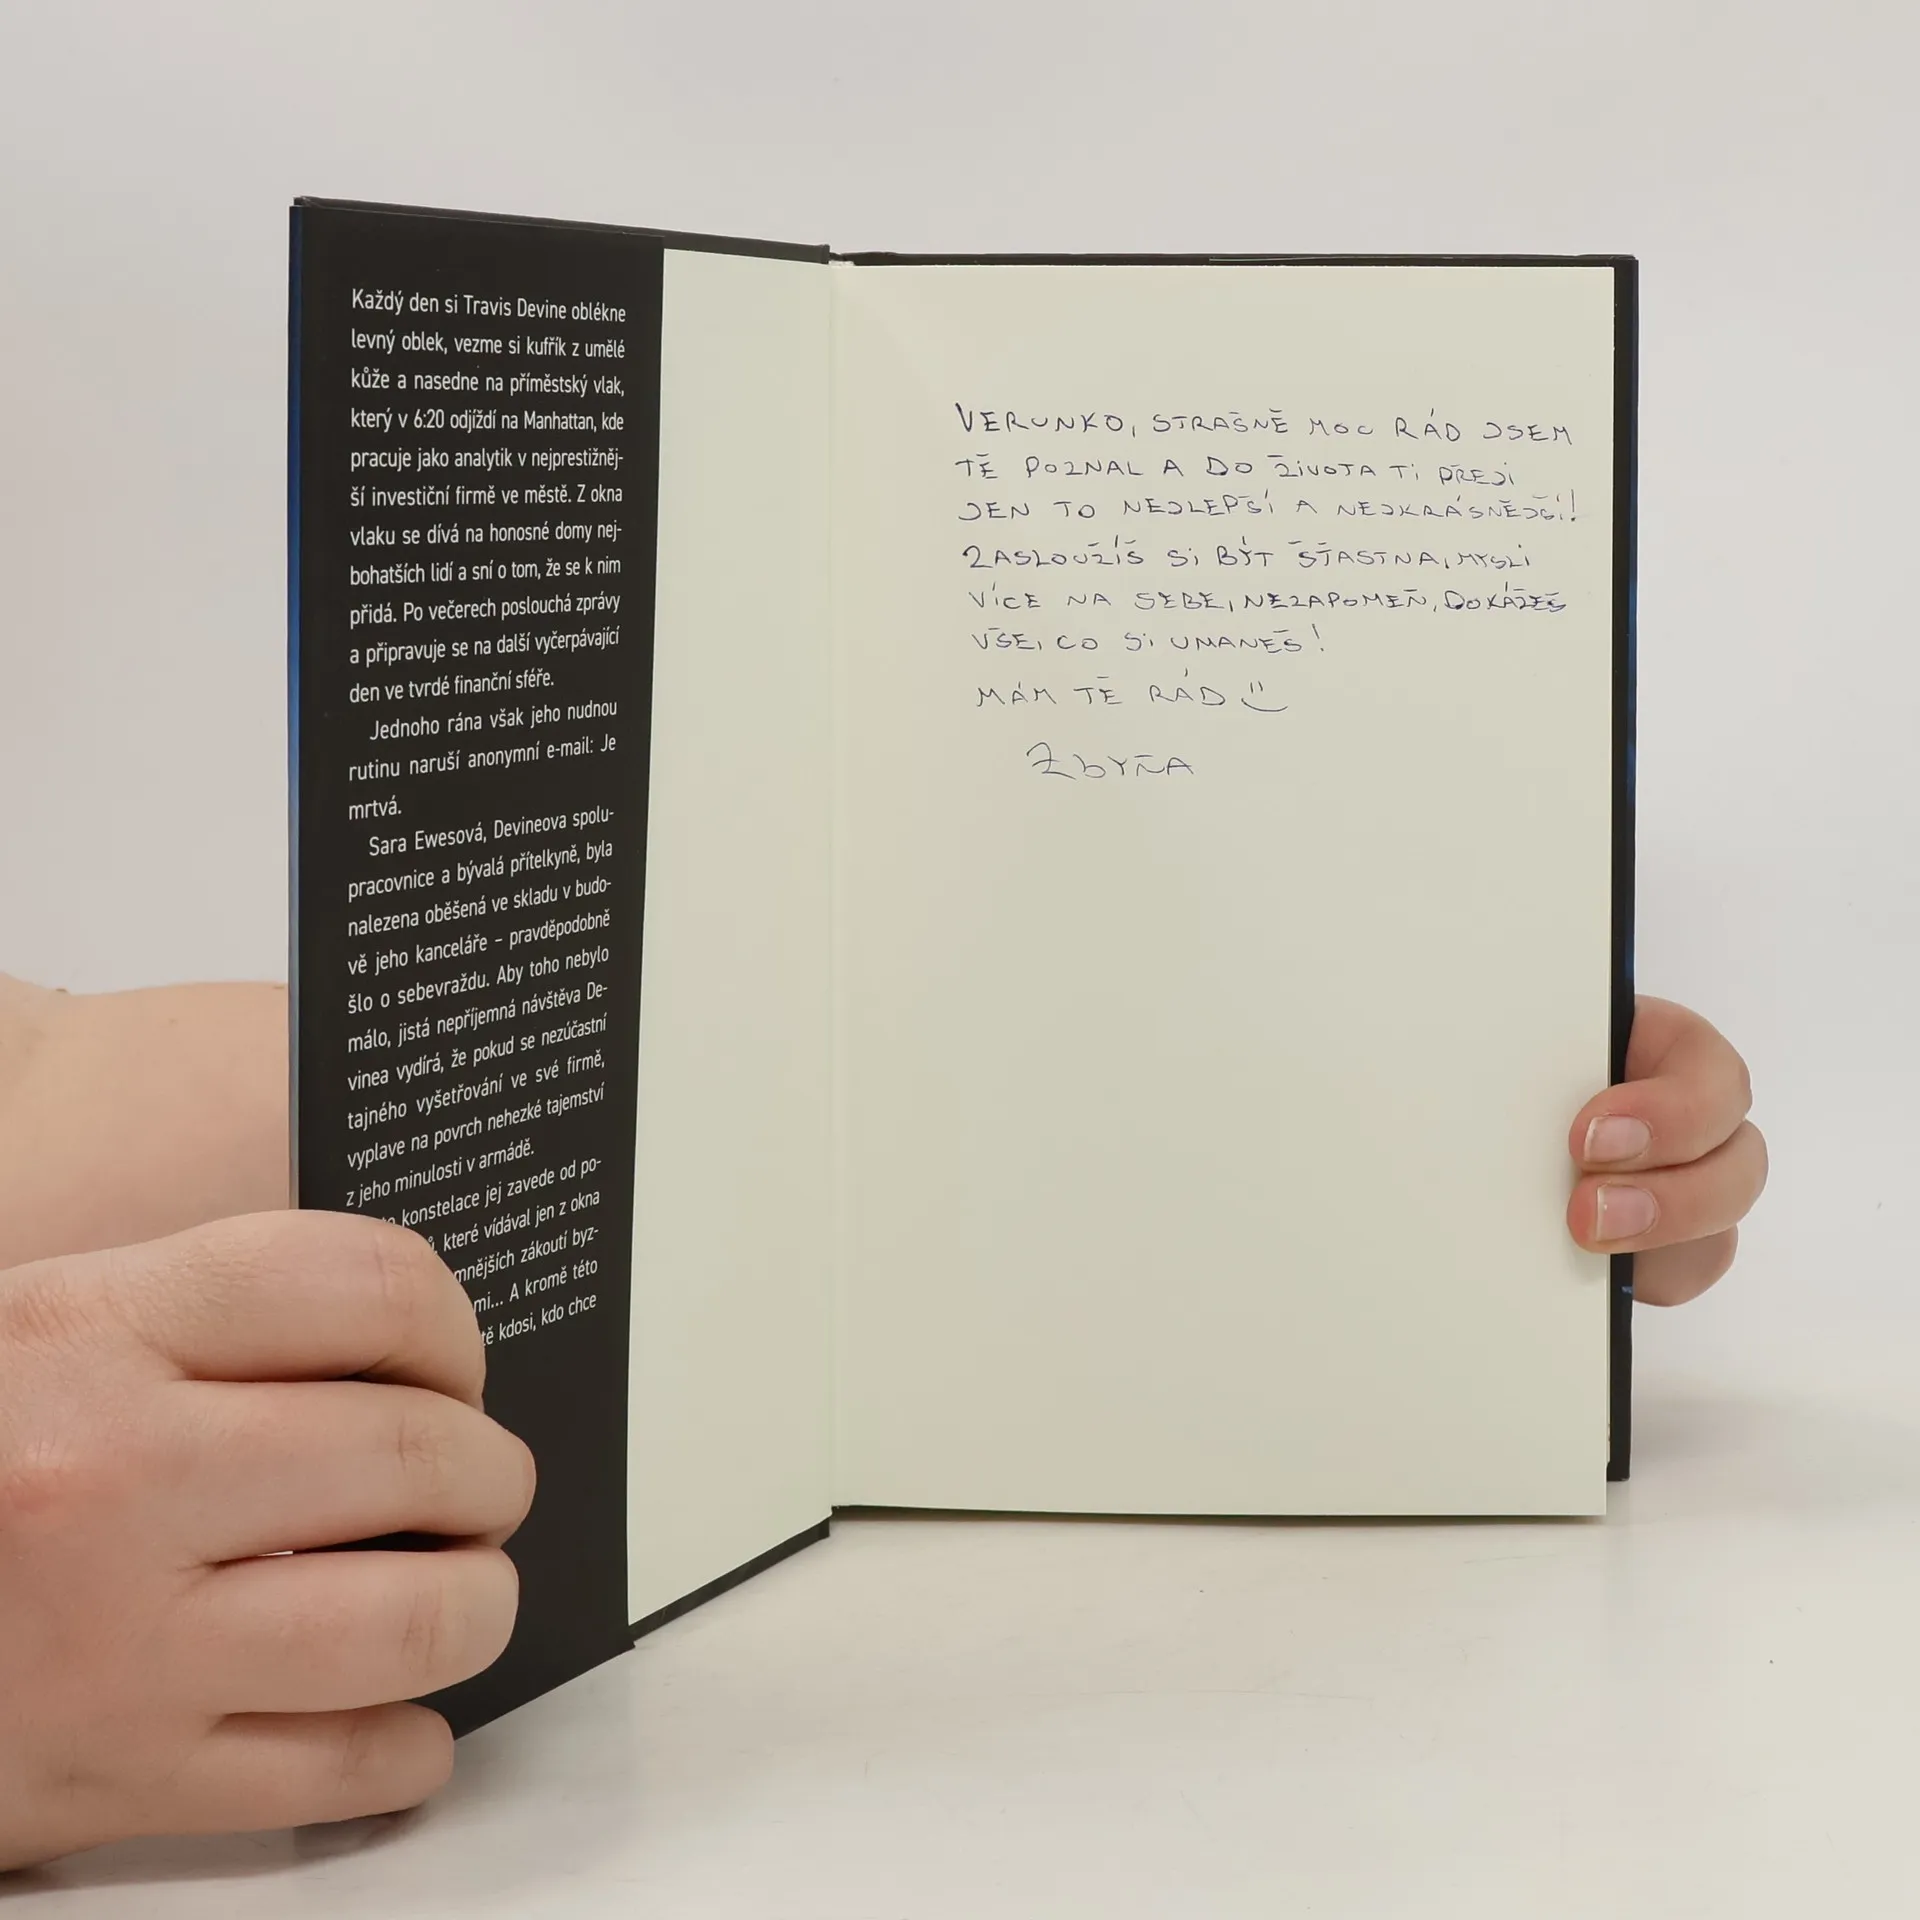 Každý den si Travis Devine oblékne
levný oblek, vezme si kufřík z umělé
kůže a nasedne na příměstský vlak,
který v 6:20 odjíždí na Manhattan, kde
pracuje jako analytik v nejprestižněj-
ší investiční firmě ve městě. Z okna
vlaku se dívá na honosné domy nej-
bohatších lidí a sní o tom, že se k nim
přidá. Po večerech poslouchá zprávy
a připravuje se na další vyčerpávající
den ve tvrdé finanční sféře.
Jednoho rána však jeho nudnou
rutinu naruší anonymní e-mail: Je
mrtvá.
Sara Ewesová, Devineova spolu-
pracovnice a bývalá přítelkyně, byla
nalezena oběšená ve skladu v budo-
vě jeho kanceláře – pravděpodobně
šlo o sebevraždu. Aby toho nebylo
málo, jistá nepříjemná návštěva De-
vinea vydírá, že pokud se nezúčastní
tajného vyšetřování ve své firmě,
vyplave na povrch nehezké tajemství
z jeho minulosti v armádě.
konstelace jej zavede od po-
které vídával jen z okna
zákoutí byz-
A kromě této
kdosi, kdo chce
VERUNKO, STRAŠNĚ MOC RÁD JSEM
TĚ POZNAL A DO ŽIVOTA TI PŘEJI
JEN TO NEJLEPŠÍ A NEJKRÁSNĚJŠÍ!
ZASLOUŽÍŠ SI BÝT ŠŤASTNA, MYSLI
VÍCE NA SEBE, NEZAPOMEŇ, DOKÁŽEŠ
VŠE, CO SI UMANEŠ!
MÁM TĚ RÁD
ZbYŇA